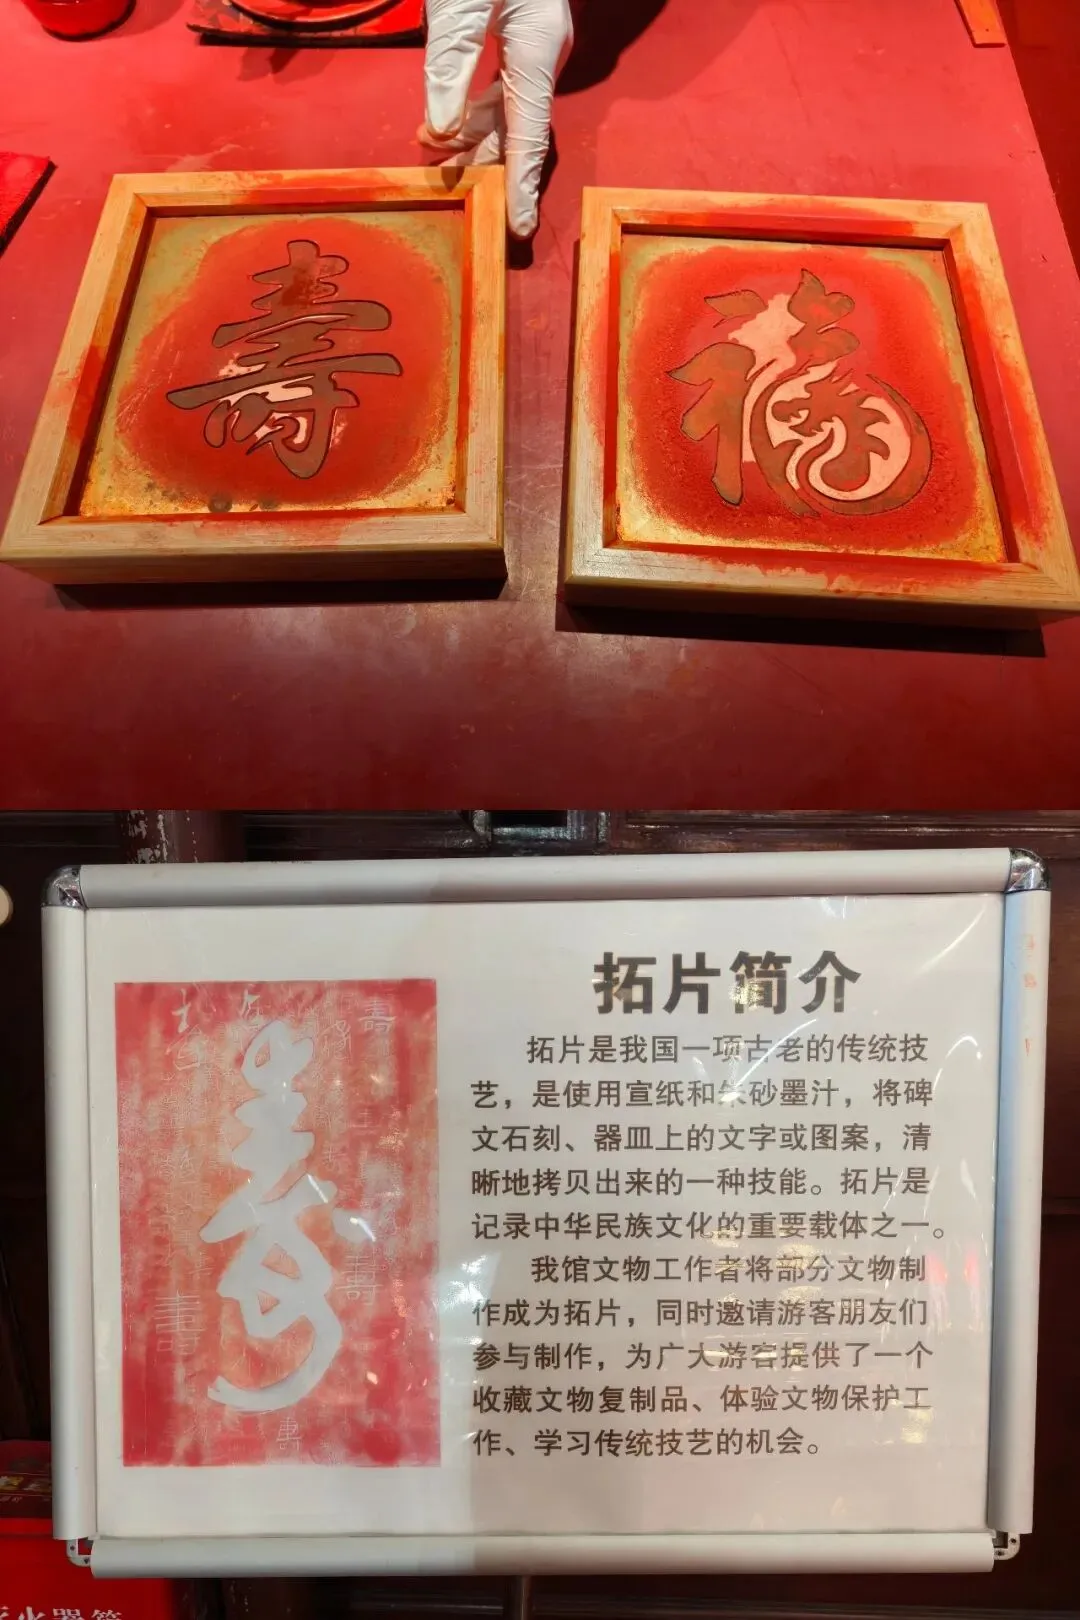 寿
福
拓片简介
拓片是我国一项古老的传统技
艺，是使用宣纸和朱砂墨汁，将碑
文石刻、器皿上的文字或图案，清
晰地拷贝出来的一种技能。拓片是
记录中华民族文化的重要载体之一。
我馆文物工作者将部分文物制
作成为拓片，同时邀请游客朋友们
参与制作，为广大游客提供了一个
收藏文物复制品、体验文物保护工
作、学习传统技艺的机会。
壽
壽
壽